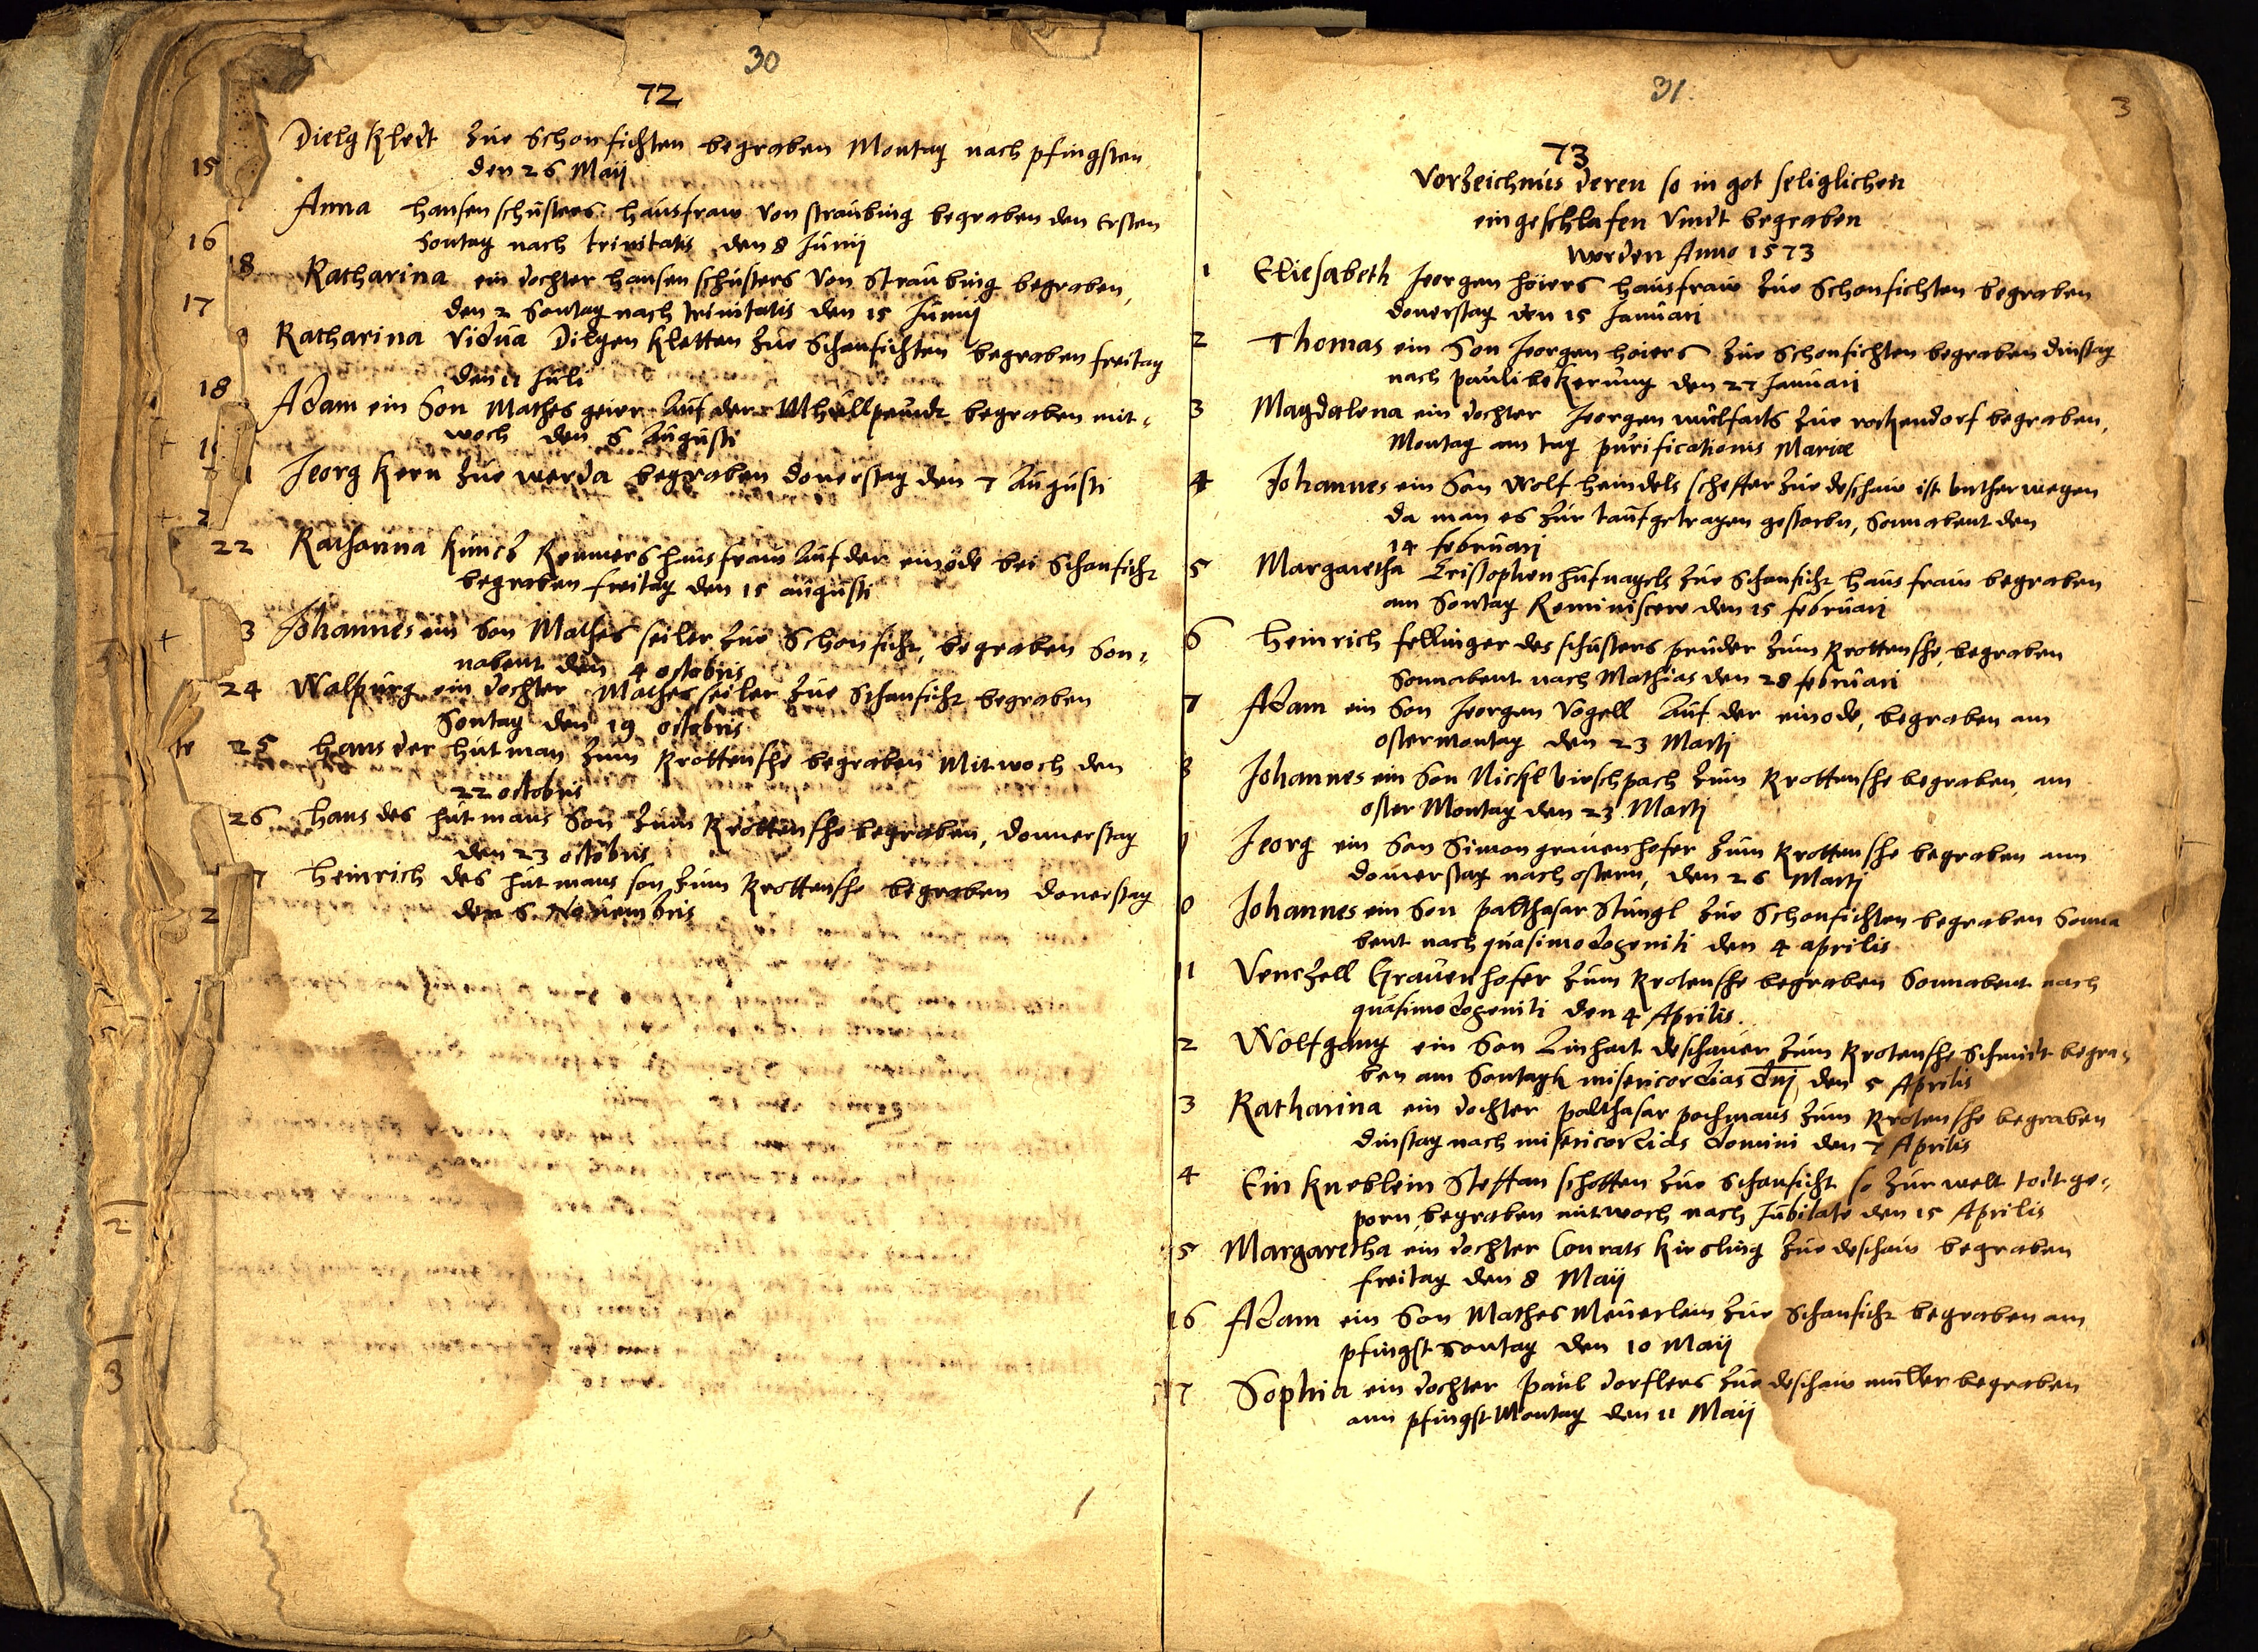 30
72
15 Dielg Kledt zue Schonfichten begraben Montag nach pfingsten
den 26 Maij
16 Anna hansen schusters hausfraw von straubing begraben den Ersten
Sontag nach trinitatis den 8 Junij
18 Katharina ein dochter hansen schusters von Straubing begraben,
17 den 2 Sontag nach trinitatis den 15 Junij
Katharina vidua Dilgen kletten zue Schonfichten begraben freitag
den 11 Juli
18 Adam ein Son Mathes geier Auf der begraben mit-
woch den 6 Augusti
Jeorg Kern zue werda begraben donerstag den 7 Augusti
2
22 Katharina Kuncz hausfraw Auf der einöde bei Schonficht
begraben freitag den 15 augusti
3 Johannes ein Son Mathes seiler zue Schonficht, begraben Son-
nabent den 4 octobris
24 Walpurg ein dochter Mathes seiler zue Schonficht begraben
Sontag den 19 octobris
25 hans der hutman zum Krottensehe begraben Mitwoch den
22 octobris
26 hans des hutmans Son zum Krottensehe begraben, donnerstag
den 23 octobris
7 heinrich des hutmans son zum Krottensehe begraben donerstag
2 den 6 Nouembris
2
3
31.
3
73
Vorzeichnus deren so in got seliglichen
eingeschlafen vndt begraben
worden Anno 1573
1 Eliesabeth Jeorgen höiers hausfraw zue Schonfichten begraben
donerstag den 15 Januari
2 Thomas ein Son Jeorgen hoiers zue Schonfichten begraben dinstag
nach pauli bekerung den 27 Januari
3 Magdalena ein dochter Jeorgen wulfarts zue rockendorf begraben,
Montag am tag purificationis Mariæ
4 Johannes ein Son Wolf heindels scheffer zue deschaw ist vnther wegen
da man es zur tauf getragen gestorbn, Sonnabent den
14 februarj
5 Margaretha Cristophen hufnagels zue Schonficht hausfraw begraben
am Sontag Reminiscere den 15 februari
6 heinrich fellinger des schusters pruder zum Krottensehe, begraben
Sonnabent nach Mathias den 28 februari
7 Adam ein Son Jeorgen vogell Auf der einode, begraben am
ostermontag den 23 Martj
8 Johannes ein Son Nickl virschpach zum Krottensehe begraben, am
oster Montag den 23 Martj
Jeorg ein Son Simon grauenhofer zum Krottensehe begraben am
donnerstag nach ostern, den 26 Martj
0 Johannes ein Son palthasar Stungl zue Schonfichten begraben Sonna
bent nach quasimodogeniti den 4 aprilis
11 Venczell Grauenhofer zum Krotensehe begraben Sonnabent nach
quasimodogeniti den 4 Aprilis.
2 Wolfgang ein Son Linhart deschauer zum Krotensehe Schmidt begra-
ben am Sontagk misericordias dnj den 5 Aprilis
3 Katharina ein dochter palthasar pochmans zum Krotensehe begraben
dinstag nach misericordias domini den 7 Aprilis
4 Ein kneblein Steffan schotten zue Schonficht so zur welt todt ge-
porn, begraben mitwoch nach Jubilate den 15 Aprilis
5 Margaretha ein dochter Conrats kiesling zue deschaw begraben
freitag den 8 Maij
16 Adam ein Son Mathes Meuerlein zue Schonficht begraben am
pfingst Sontag den 10 Maij
17 Sophia ein dochter paul dorflers zue deschaw muller begraben
am pfingst Montag den 11 Maij